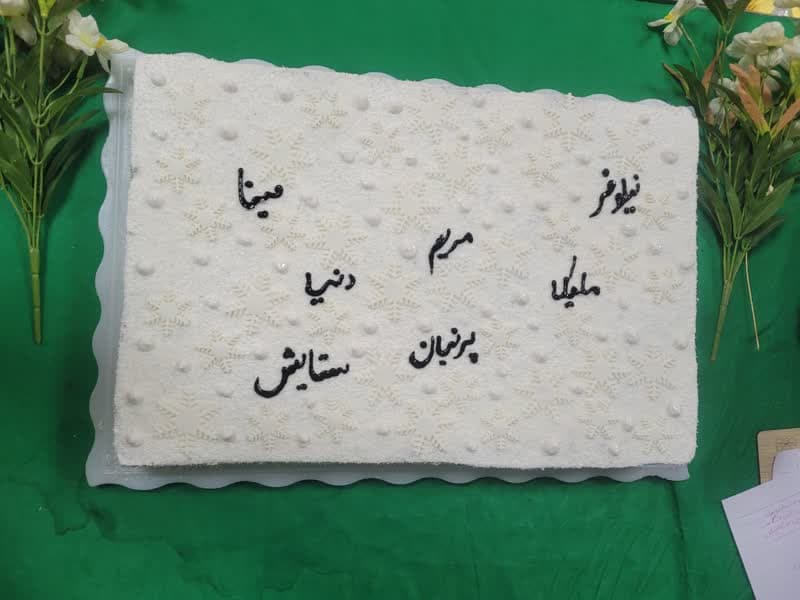 نیلوفر
مینا
مریم
ملیکا
دنیا
پرنیان
ستایش